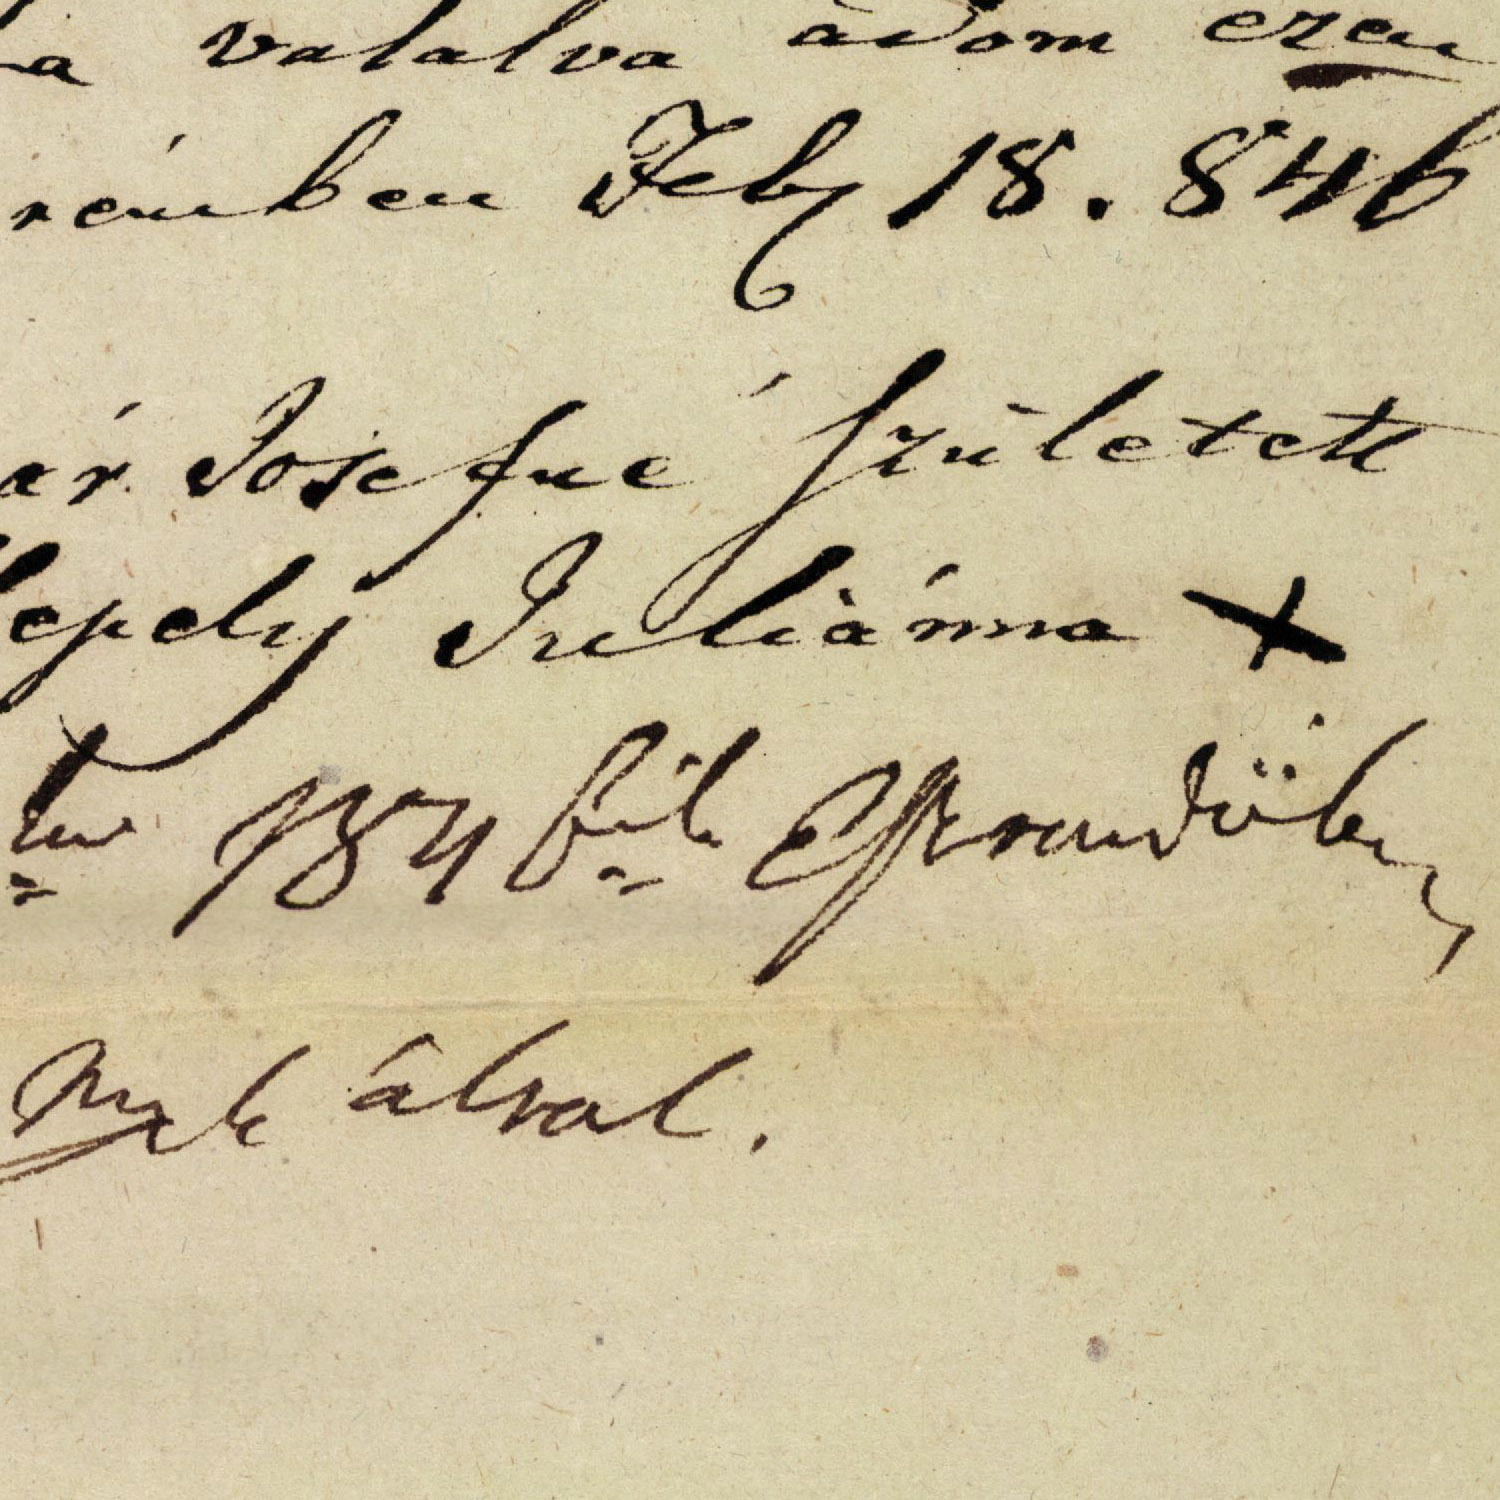 a valalva àdom ezen
rémben Feb 18. 846
ár Josefné Született
lepely Juliànna x
184 6 ik Esztendöben
által.